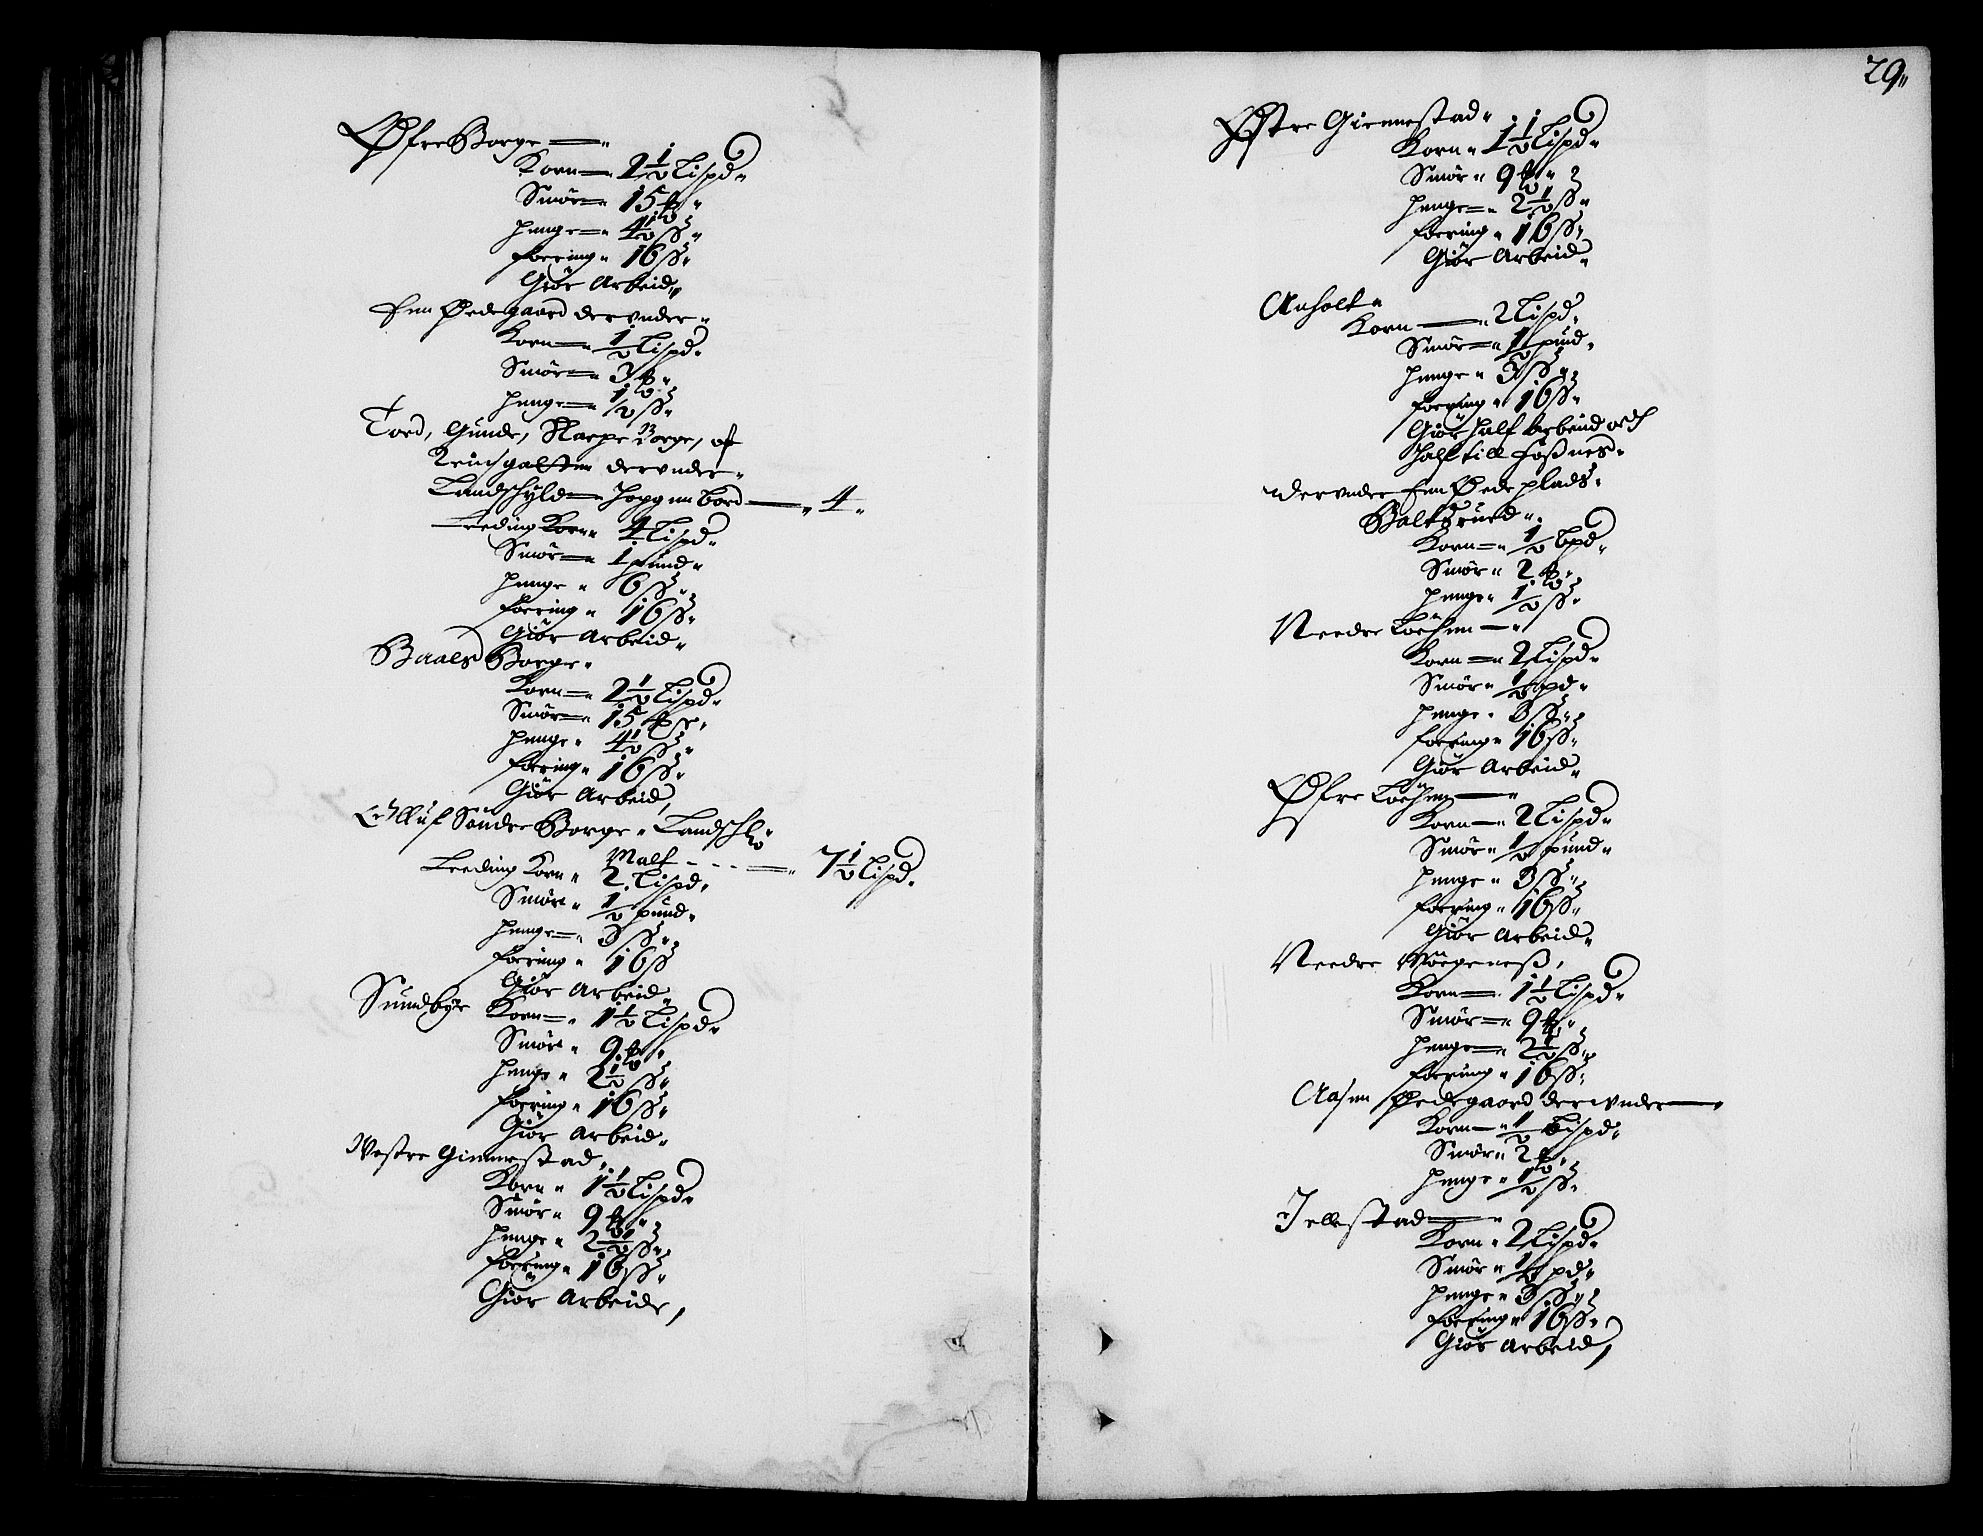 Øfre Borge
Korn 2½ Lispd
Smör 15 ℔
Penge 4½ ß
foering 16 ß
Giör Arbeid
Een Ødegaard derunder
Korn ½ Lispd
Smör 3 ℔
Penge ½ ß
Tord, Gunde, Narpe Borge, af
derunder
Landschyld Hopgunbord 4
Leeding Korn 4 Lispd
Smör 1 pund
Penge 6 ß
foering 16 ß
Giör Arbeid
Baals Borge
Korn 2½ Lispd
Smör 15 ℔
Penge 4½ ß
foering 16 ß
Giör Arbeid
Olluf Söndre Borge Landschl
Malt 7½ Lispd
Leeding Korn 2 Lispd
Smör ½ pund
Penge 3 ß
foering 16 ß
Giör Arbeid
Sundbye Korn 1½ Lispd
Smör 9 ℔
Penge 2½ ß
foering 16 ß
Giör Arbeid
Vestre Gimmestad
Korn 1½ Lispd
Smör 9 ℔
Penge 2½ ß
foering 16 ß
Giör Arbeide
29
Østre Giemmestad
Korn 1½ Lispd
Smör 9 ℔
Penge 2½ ß
foering 16 ß
Giör Arbeid
Anholt
Korn 2 Lispd
Smör ½ pund
Penge 3 ß
foering 16 ß
Giör half Arbeid och
half till Foßnes
derunder Een Øde plads
Balkerued
Korn ½ Lpd
Smör 2 ℔
Penge ½ ß
Needre Löchen
Korn 2 Lispd
Smör ½ pd
Penge 3 ß
foering 16 ß
Giör Arbeid
Øfre Löchen
Korn 2 Lispd
Smör ½ pund
Penge 3 ß
foering 16 ß
Giör Arbeid
Needre
Korn 1½ Lispd
Smör 9 ℔
Penge 2½ ß
foering 16 ß
Aasen Ødegaard derunder
Korn ½ Lispd
Smör 2 ℔
Penge ½ ß
Jellestad
Korn 2 Lispd
Smör ½ pd
Penge 3 ß
foering 16 ß
Giör Arbeid